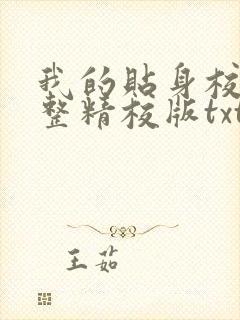 我的贴身校
整精校版txt
王茹